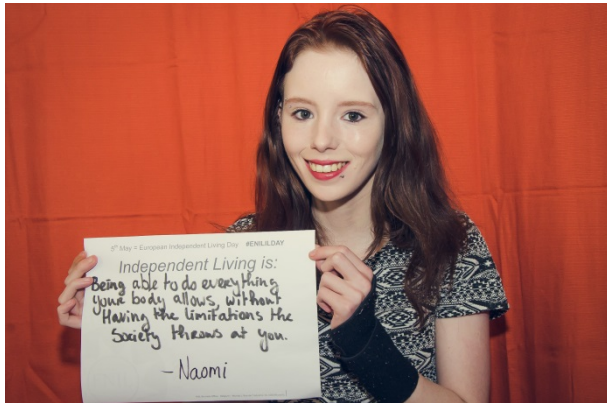 5th May = European Independent Living Day #ENILILDAY
Independent Living is:
Being able to do everything
your body allows, without
Having the limitations the
Society throws at you.
- Naomi